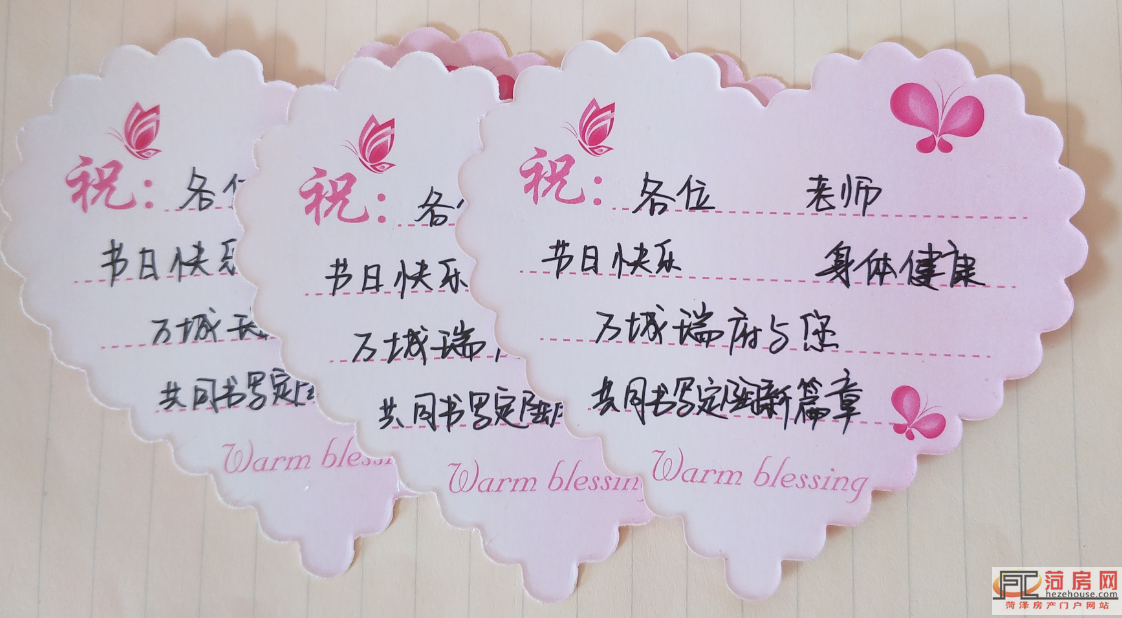 祝：各位
节日快乐
万城瑞
共同书写定陶
Warm blessi
祝：各位
节日快乐
万城瑞府
共同书写定陶
Warm blessing
祝：各位 老师
节日快乐 身体健康
万城瑞府与您
共同书写定陶新篇章
Warm blessing
菏房网
hezehouse.com
菏泽房产门户网站